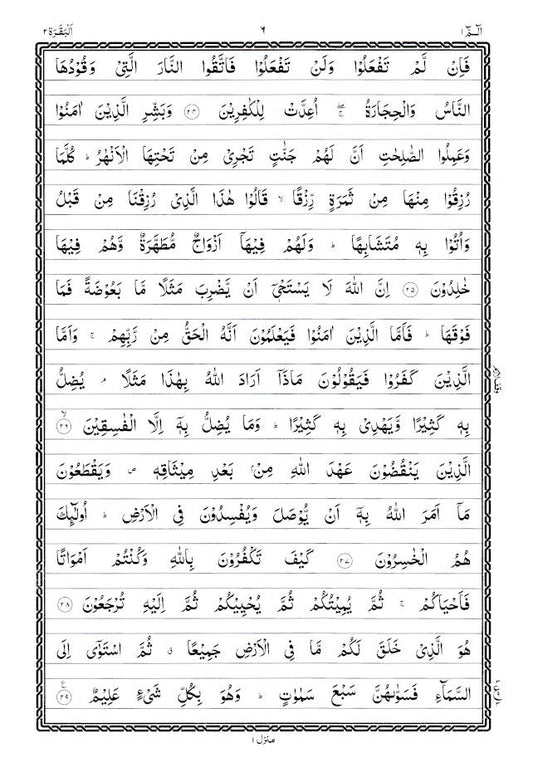 الٓـمّٓ ١ ٦ اَلْبَقَرَة ٢
فَاِنْ لَّمْ تَفْعَلُوْا وَلَنْ تَفْعَلُوْا فَاتَّقُوا النَّارَ الَّتِيْ وَقُوْدُهَا
النَّاسُ وَالْحِجَارَةُ ۖۚ اُعِدَّتْ لِلْكٰفِرِيْنَ ۝٢٤ وَبَشِّرِ الَّذِيْنَ اٰمَنُوْا
وَعَمِلُوا الصّٰلِحٰتِ اَنَّ لَهُمْ جَنّٰتٍ تَجْرِيْ مِنْ تَحْتِهَا الْاَنْهٰرُ ؕ كُلَّمَا
رُزِقُوْا مِنْهَا مِنْ ثَمَرَةٍ رِّزْقًا ۙ قَالُوْا هٰذَا الَّذِيْ رُزِقْنَا مِنْ قَبْلُ
وَاُتُوْا بِهٖ مُتَشَابِهًا ؕ وَلَهُمْ فِيْهَآ اَزْوَاجٌ مُّطَهَّرَةٌ وَّهُمْ فِيْهَا
خٰلِدُوْنَ ۝٢٥ اِنَّ اللّٰهَ لَا يَسْتَحْيٖٓ اَنْ يَّضْرِبَ مَثَلًا مَّا بَعُوْضَةً فَمَا
فَوْقَهَا ؕ فَاَمَّا الَّذِيْنَ اٰمَنُوْا فَيَعْلَمُوْنَ اَنَّهُ الْحَقُّ مِنْ رَّبِّهِمْ ۚ وَاَمَّا
الَّذِيْنَ كَفَرُوْا فَيَقُوْلُوْنَ مَاذَآ اَرَادَ اللّٰهُ بِهٰذَا مَثَلًا ۘ يُضِلُّ
بِهٖ كَثِيْرًا وَّيَهْدِيْ بِهٖ كَثِيْرًا ؕ وَمَا يُضِلُّ بِهٖٓ اِلَّا الْفٰسِقِيْنَ ۝٢٦ۙ
الَّذِيْنَ يَنْقُضُوْنَ عَهْدَ اللّٰهِ مِنْۢ بَعْدِ مِيْثَاقِهٖ ۪ وَيَقْطَعُوْنَ
مَآ اَمَرَ اللّٰهُ بِهٖٓ اَنْ يُّوْصَلَ وَيُفْسِدُوْنَ فِي الْاَرْضِ ؕ اُولٰٓئِكَ
هُمُ الْخٰسِرُوْنَ ۝٢٧ كَيْفَ تَكْفُرُوْنَ بِاللّٰهِ وَكُنْتُمْ اَمْوَاتًا
فَاَحْيَاكُمْ ۚ ثُمَّ يُمِيْتُكُمْ ثُمَّ يُحْيِيْكُمْ ثُمَّ اِلَيْهِ تُرْجَعُوْنَ ۝٢٨
هُوَ الَّذِيْ خَلَقَ لَكُمْ مَّا فِي الْاَرْضِ جَمِيْعًا ۗ ثُمَّ اسْتَوٰٓى اِلَى
السَّمَآءِ فَسَوّٰىهُنَّ سَبْعَ سَمٰوٰتٍ ؕ وَهُوَ بِكُلِّ شَيْءٍ عَلِيْمٌ ۝٢٩
منزل ١